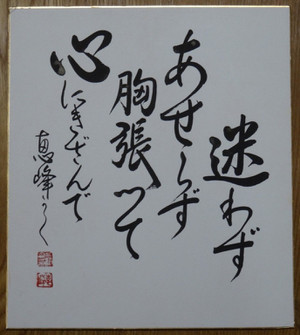 迷わず
あせらず
胸張って
心にきざんで
恵峰かく